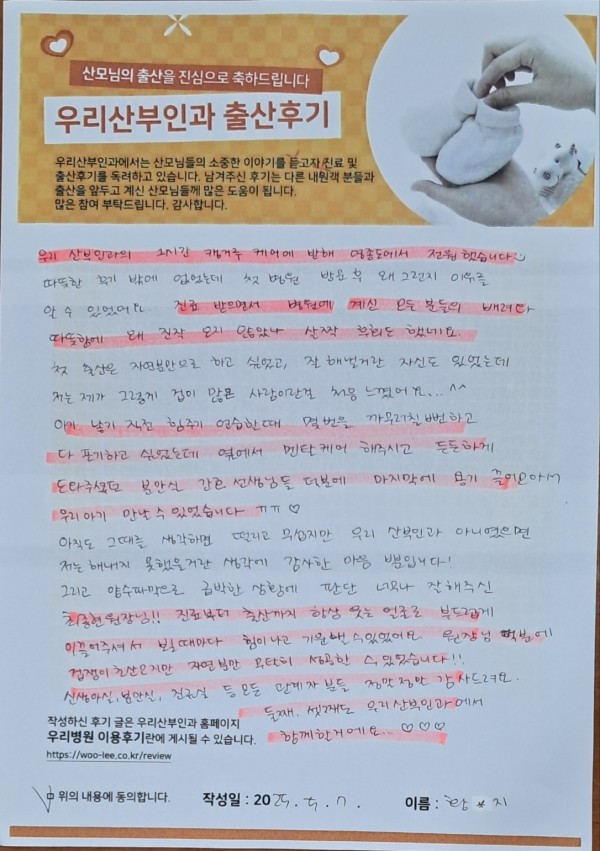 산모님의 출산을 진심으로 축하드립니다
우리산부인과 출산후기
우리산부인과에서는 산모님들의 소중한 이야기를 듣고자 진료 및
출산후기를 독려하고 있습니다. 남겨주신 후기는 다른 내원객 분들과
출산을 앞두고 계신 산모님들께 많은 도움이 됩니다.
많은 참여 부탁드립니다. 감사합니다.
우리 산부인과의 1시간 캥거루 케어에 반해 영종도에서 전원했습니다
따뜻한 후기 밖에 없었는데 첫 병원 방문 후 왜 그런지 이유를
알 수 있었어요. 진료 받으면서 병원에 계신 모든 분들의 배려와
따뜻함에 왜 진작 오지 않았나 살짝 후회도 했네요.
첫 출산은 자연분만으로 하고 싶었고, 잘 해낼거란 자신도 있었는데
저는 제가 그렇게 겁이 많은 사람이란걸 처음 느꼈어요... ^^
아기 낳기 직전 힘주기 연습할때 몇번을 까무러칠뻔하고
다 포기하고 싶었는데 옆에서 멘탈케어 해주시고 든든하게
도와주셨던 분만실 간호 선생님들 덕분에 마지막에 용기 끌어모아서
우리아기 만날 수 있었습니다 ㅠㅠ ♡
아직도 그때를 생각하면 떨리고 무섭지만 우리 산부인과 아니였으면
저는 해내지 못했을거란 생각에 감사한 마음 뿐입니다!
그리고 양수파막으로 급박한 상황에 판단 너무나 잘해주신
원장님!! 진료부터 출산까지 항상 웃는 얼굴로 부드럽게
이끌어주셔서 뵐때마다 힘이나고 기운낼 수 있었어요 원장님 덕분에
겁쟁이 초산모지만 자연분만 무탈히 성공할 수 있었습니다!!
신생아실, 분만실, 진료실 등 모든 관계자 분들 정말정말 감사드려요.
둘째, 셋째도 우리산부인과에서
함께할거에요... ♡♡♡
작성하신 후기 글은 우리산부인과 홈페이지
우리병원 이용후기란에 게시될 수 있습니다.
https://woo-lee.co.kr/review
위의 내용에 동의합니다. 작성일 : 2025. 5. 7. 이름 : 황*지